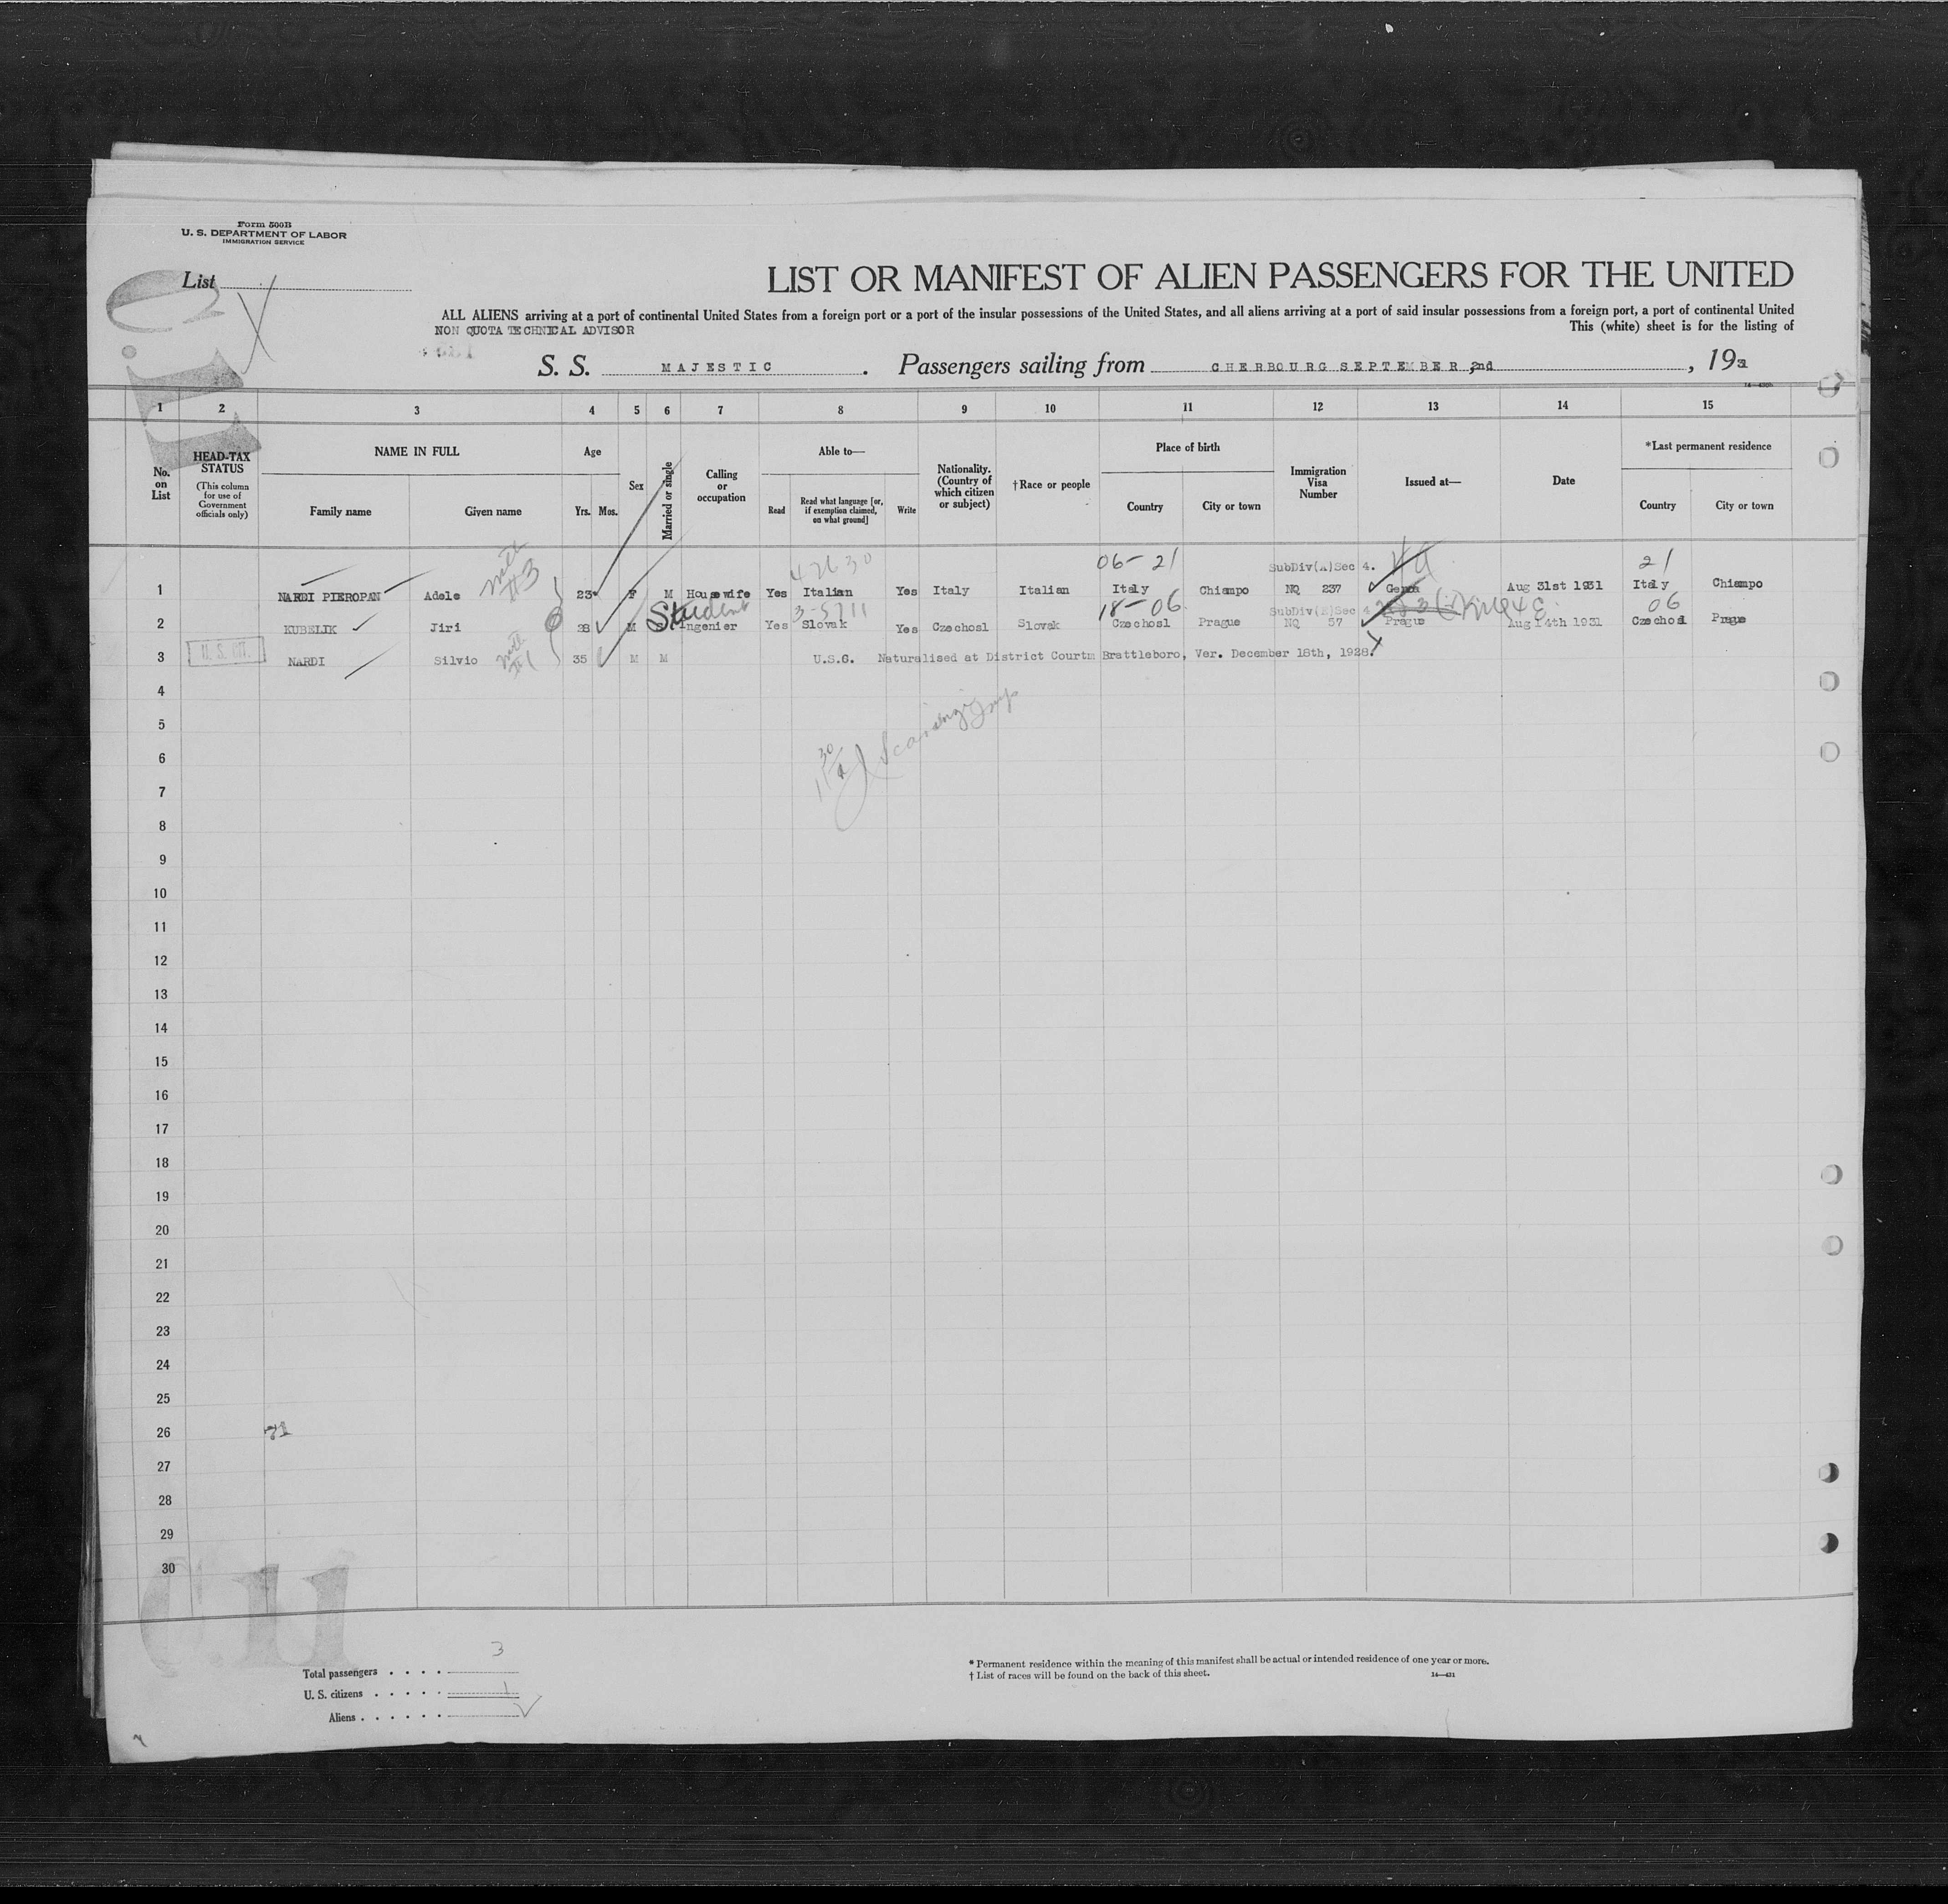 Form 500B
U. S. DEPARTMENT OF LABOR
IMMIGRATION SERVICE
List
LIST OR MANIFEST OF ALIEN PASSENGERS FOR THE UNITED
ALL ALIENS arriving at a port of continental United States from a foreign port or a port of the insular possessions of the United States, and all aliens arriving at a port of said insular possessions from a foreign port, a port of continental United
NON QUOTA TECHNICAL ADVISOR
This (white) sheet is for the listing of
S. S. MAJESTIC. Passengers sailing from CHERBOURG SEPTEMBER, 2nd, 1931
1 2 3 4 5 6 7 8 9 10 11 12 13 14 15
No. on List
HEAD-TAX STATUS (This column for use of Government officials only)
NAME IN FULL
Family name Given name
Age
Yrs. Mos.
Sex
Married or single
Calling or occupation
Able to—
Read Read what language [or, if exemption claimed, on what ground] Write
Nationality. (Country of which citizen or subject)
†Race or people
Place of birth
Country City or town
Immigration Visa Number
Issued at—
Date
*Last permanent residence
Country City or town
06-21 SubDiv(A)Sec 4. 21
1 NARDI PIEROPAN Adele with #3 23 F M Housewife Yes Italian Yes Italy Italian Italy Chiampo NQ 237 Genoa Aug 31st 1931 Italy Chiampo
Student 3-5711 18-06 06
2 KUBELIK Jiri 28 M S Ingenier Yes Slovak Yes Czechosl Slovak Czechosl Prague NQ 57 Prague Aug 14th 1931 Czechosl Prague
3 U.S. CIT. NARDI Silvio with #1 35 M M U.S.C. Naturalised at District Courtm Brattleboro, Ver. December 18th, 1928.
4
5
6
7
8
9
10
11
12
13
14
15
16
17
18
19
20
21
22
23
24
25
26
27
28
29
30
Total passengers . . . . 3
U. S. citizens . . . . . 1
Aliens . . . . . .
* Permanent residence within the meaning of this manifest shall be actual or intended residence of one year or more.
† List of races will be found on the back of this sheet.
14—421